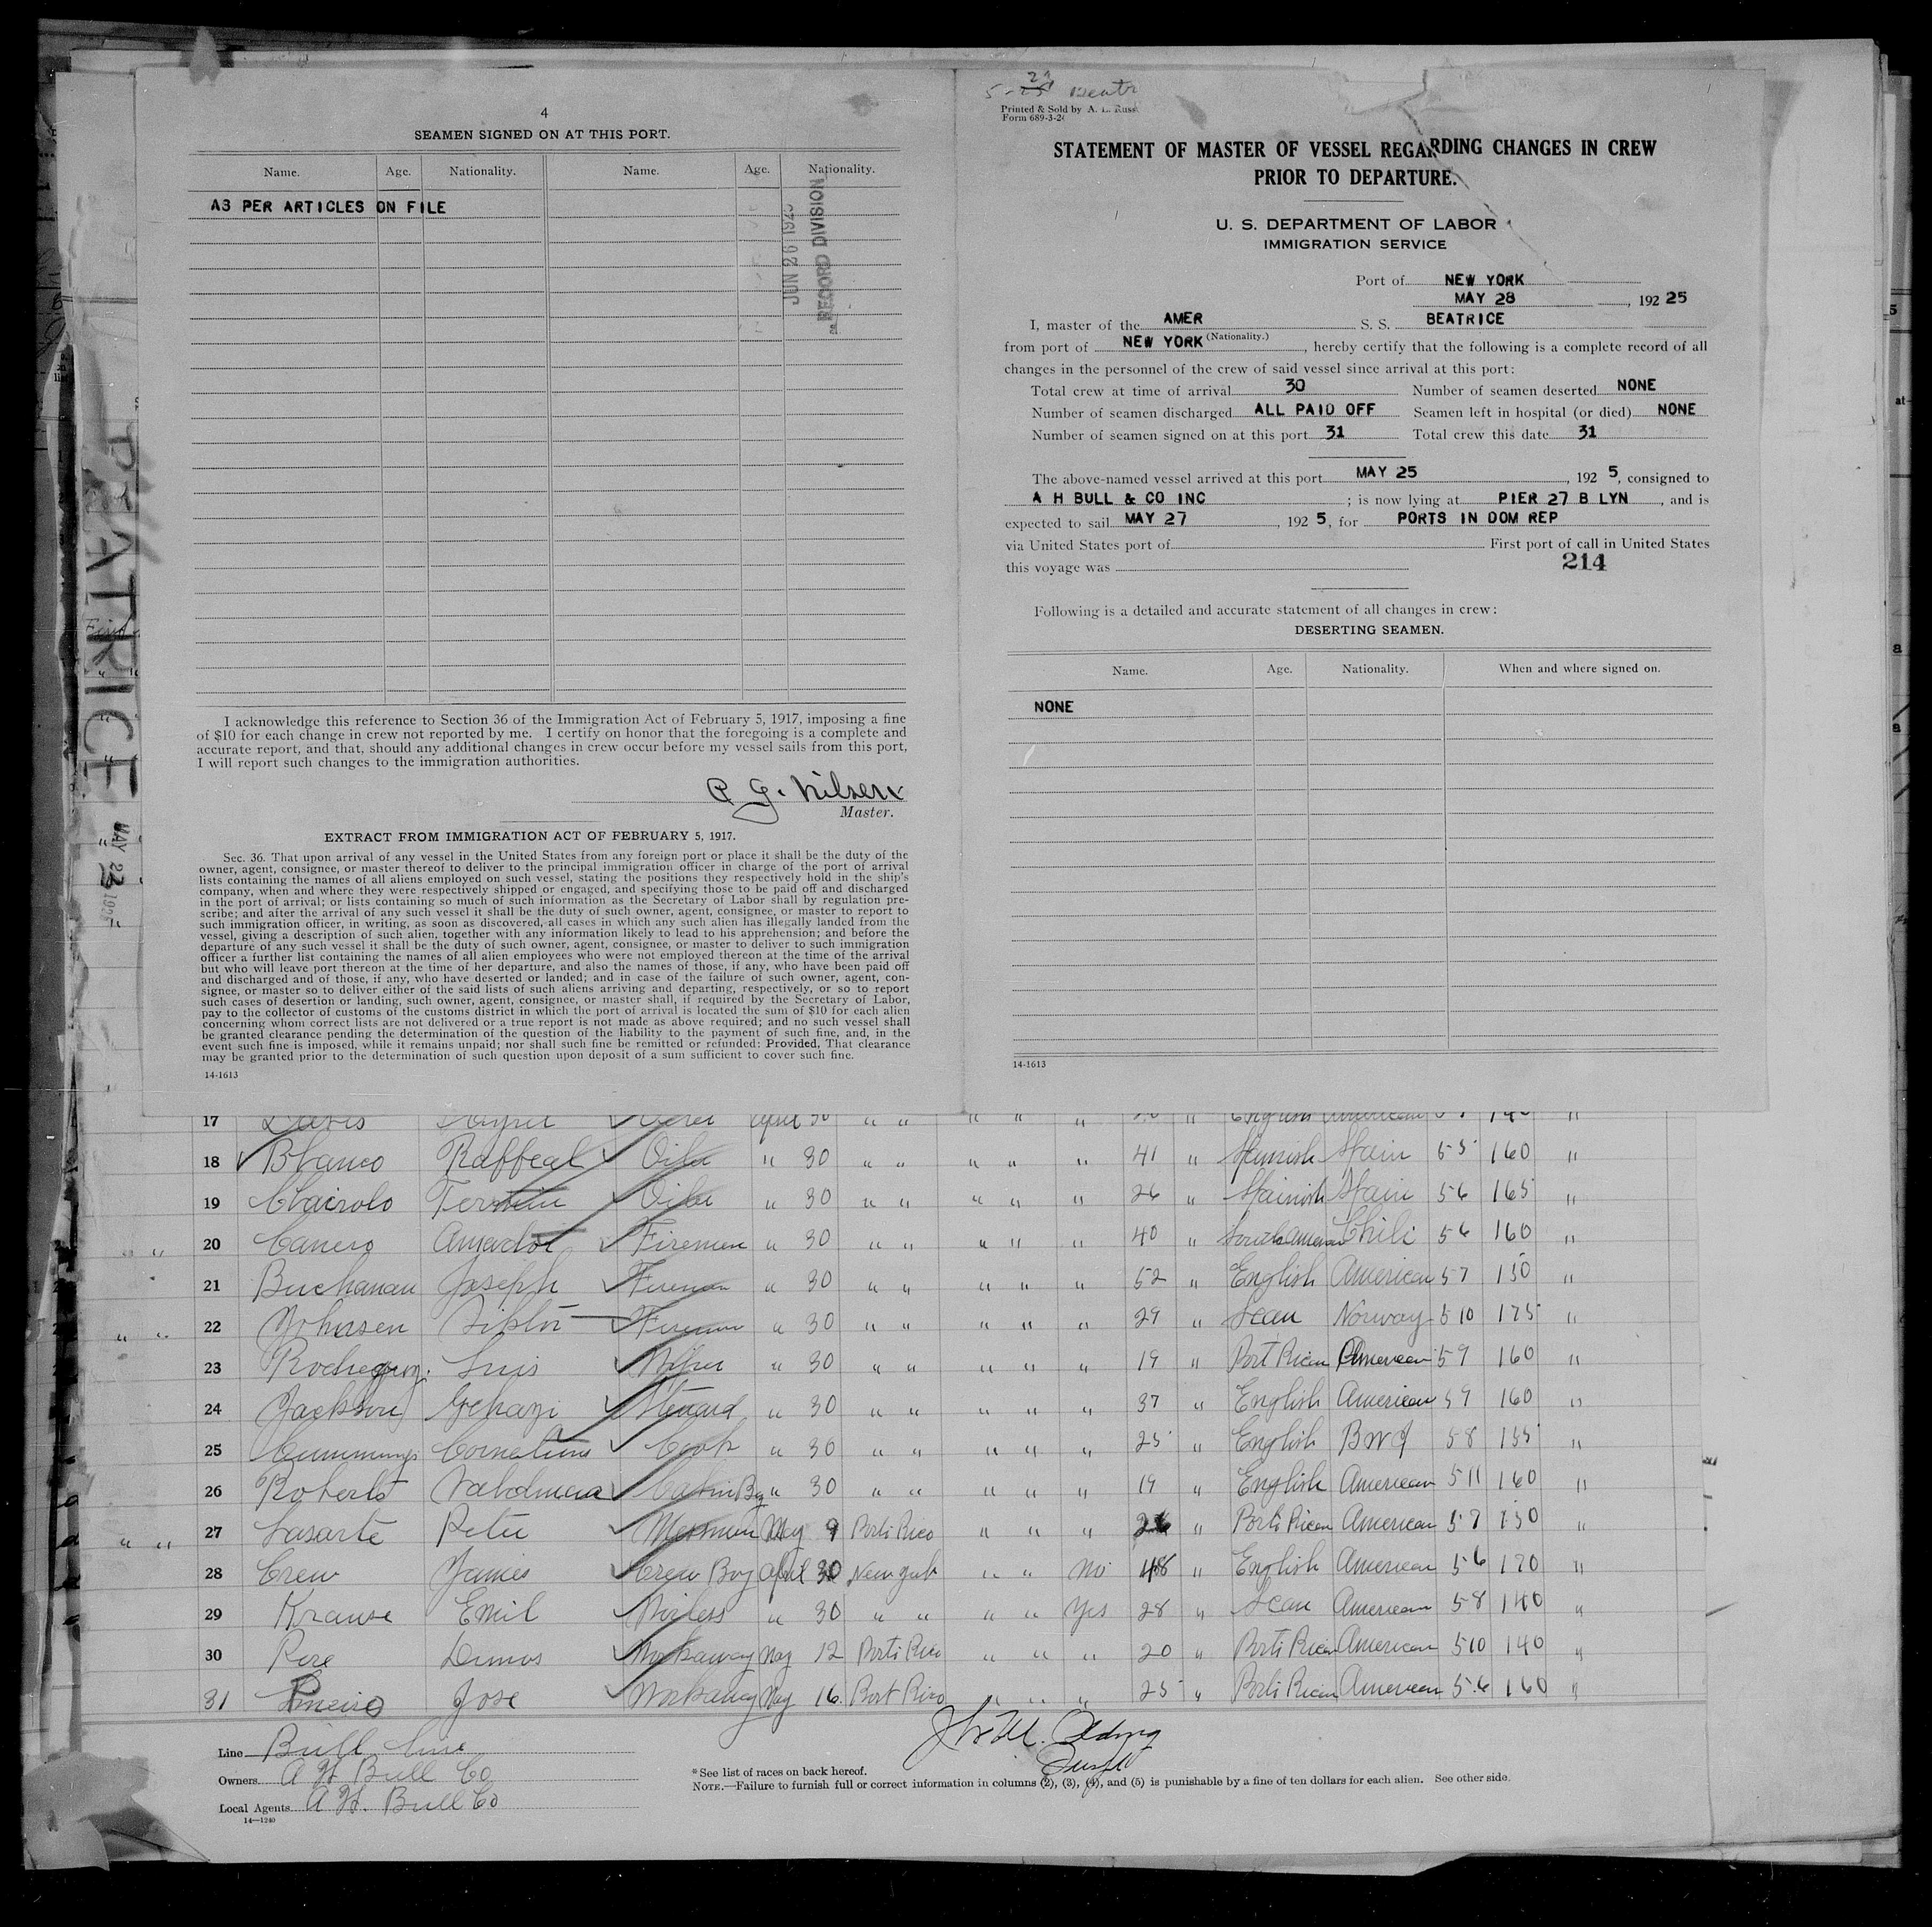 4
SEAMEN SIGNED ON AT THIS PORT.
Name. Age. Nationality. Name. Age. Nationality.
AS PER ARTICLES ON FILE
JUN 26 1925
RECORD DIVISION
I acknowledge this reference to Section 36 of the Immigration Act of February 5, 1917, imposing a fine
of $10 for each change in crew not reported by me. I certify on honor that the foregoing is a complete and
accurate report, and that, should any additional changes in crew occur before my vessel sails from this port,
I will report such changes to the immigration authorities.
Nilsen
Master.
EXTRACT FROM IMMIGRATION ACT OF FEBRUARY 5, 1917.
Sec. 36. That upon arrival of any vessel in the United States from any foreign port or place it shall be the duty of the
owner, agent, consignee, or master thereof to deliver to the principal immigration officer in charge of the port of arrival
lists containing the names of all aliens employed on such vessel, stating the positions they respectively hold in the ship's
company, when and where they were respectively shipped or engaged, and specifying those to be paid off and discharged
in the port of arrival; or lists containing so much of such information as the Secretary of Labor shall by regulation pre-
scribe; and after the arrival of any such vessel it shall be the duty of such owner, agent, consignee, or master to report to
such immigration officer, in writing, as soon as discovered, all cases in which any such alien has illegally landed from the
vessel, giving a description of such alien, together with any information likely to lead to his apprehension; and before the
departure of any such vessel it shall be the duty of such owner, agent, consignee, or master to deliver to such immigration
officer a further list containing the names of all alien employees who were not employed thereon at the time of the arrival
but who will leave port thereon at the time of her departure, and also the names of those, if any, who have been paid off
and discharged and of those, if any, who have deserted or landed; and in case of the failure of such owner, agent, con-
signee, or master so to deliver either of the said lists of such aliens arriving and departing, respectively, or so to report
such cases of desertion or landing, such owner, agent, consignee, or master shall, if required by the Secretary of Labor,
pay to the collector of customs of the customs district in which the port of arrival is located the sum of $10 for each alien
concerning whom correct lists are not delivered or a true report is not made as above required; and no such vessel shall
be granted clearance pending the determination of the question of the liability to the payment of such fine, and, in the
event such fine is imposed, while it remains unpaid; nor shall such fine be remitted or refunded: Provided, That clearance
may be granted prior to the determination of such question upon deposit of a sum sufficient to cover such fine.
14-1613
Printed & Sold by A. L. Russ
Form 689-3-2
STATEMENT OF MASTER OF VESSEL REGARDING CHANGES IN CREW
PRIOR TO DEPARTURE.
U. S. DEPARTMENT OF LABOR
IMMIGRATION SERVICE
Port of NEW YORK
MAY 28, 192 25
I, master of the AMER S. S. BEATRICE
(Nationality.)
from port of NEW YORK, hereby certify that the following is a complete record of all
changes in the personnel of the crew of said vessel since arrival at this port:
Total crew at time of arrival 30 Number of seamen deserted NONE
Number of seamen discharged ALL PAID OFF Seamen left in hospital (or died) NONE
Number of seamen signed on at this port 31 Total crew this date 31
The above-named vessel arrived at this port MAY 25, 192 5, consigned to
A H BULL & CO INC; is now lying at PIER 27 B LYN, and is
expected to sail MAY 27, 192 5, for PORTS IN DOM REP
via United States port of First port of call in United States
this voyage was 214
Following is a detailed and accurate statement of all changes in crew:
DESERTING SEAMEN.
Name. Age. Nationality. When and where signed on.
NONE
14-1613
BEATRICE
17 Davis April 30 " " " " " " English American
18 Blanco Raffeal Oiler " 30 " " " " " 41 " Spanish Spain 5 5 160 "
19 Oiler " 30 " " " " " 26 " Spainish Spain 5 6 165 "
20 Canero Amador Firemen " 30 " " " " " 40 " South American Chili 5 6 160 "
21 Buchanan Joseph Fireman " 30 " " " " " 52 " English American 5 7 150 "
22 Johnsen Fireman " 30 " " " " " 29 " Scan Norway 5 10 175 "
23 Luis Wiper " 30 " " " " " 19 " Port Rican American 5 9 160 "
24 Jackson Gehazi Steward " 30 " " " " " 37 " English American 5 9 160 "
25 Cummings Cornelius Cook " 30 " " " " " 25 " English BWI 5 8 155 "
26 Roberts Cabin Boy " 30 " " " " " 19 " English American 5 11 160 "
27 Lasarte Peter Messman May 9 Porto Rico " " " " Porto Rican American 5 7 150 "
28 Crew James Crew Boy April 30 New York " " No 48 " English American 5 6 170 "
29 Krause Emil Wireless " 30 " " " " Yes 28 " Scan American 5 8 140 "
30 Rose Workaway May 12 Porto Rico " " " 20 " Porto Rican American 5 10 140 "
31 Jose Workaway May 16 Port Rico " " " 25 " Porto Rican American 5.6 160 "
Line Bull Line
Owners A H Bull Co
Local Agents A H. Bull Co
14-1240
* See list of races on back hereof.
NOTE.—Failure to furnish full or correct information in columns (2), (3), (4), and (5) is punishable by a fine of ten dollars for each alien. See other side.